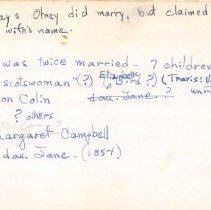 ays Otney did marry, but claimed
wife's name.
was twice married - 7 children
scotswoman" (?) Elizabeth Bird ?) (Travis:
on Colin dau. Jane. ?
? others
argaret Campbell
dau. Jane - (1854)